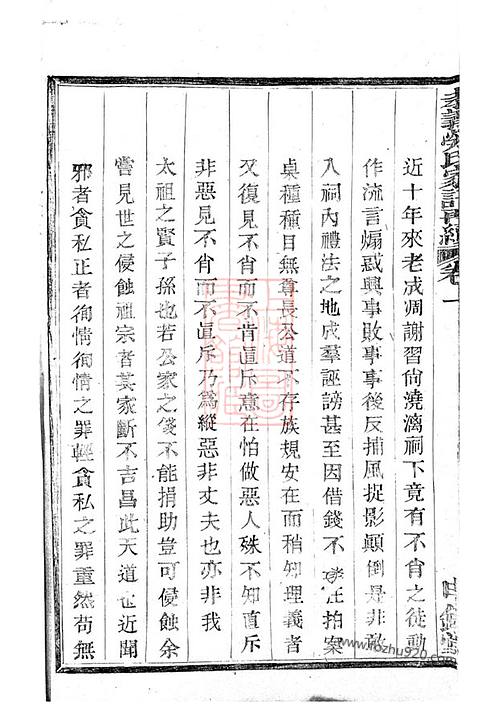 近十年來老成凋謝習尙澆漓祠下竟有不肖之徒動
作流言煽惑興事敗事事後反捕風捉影顚倒是非
入祠內禮法之地成羣誣謗甚至因借錢不拍案
桌種種目無尊長公道不存族規安在而稍知理義者
又復見不肖而不肯直斥意在怕做惡人殊不知直斥
非惡見不肖而不直斥乃爲縱惡非丈夫也亦非我
太祖之賢子孫也若公家之錢不能捐助豈可侵蝕余
嘗見世之侵蝕祖宗者其家斷不吉昌此天道也近聞
邪者貪私正者徇情徇情之罪輕貪私之罪重然苟無
氏家譜續卷一
www.rozhu920.com